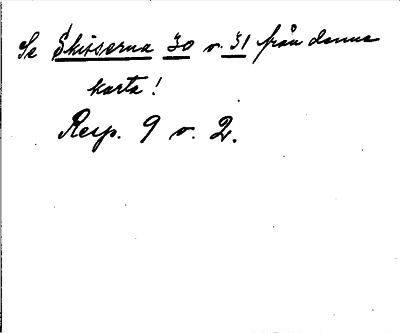 Se Skisserna 30 o. 31 från denna
karta!
Resp. 9 o. 2.